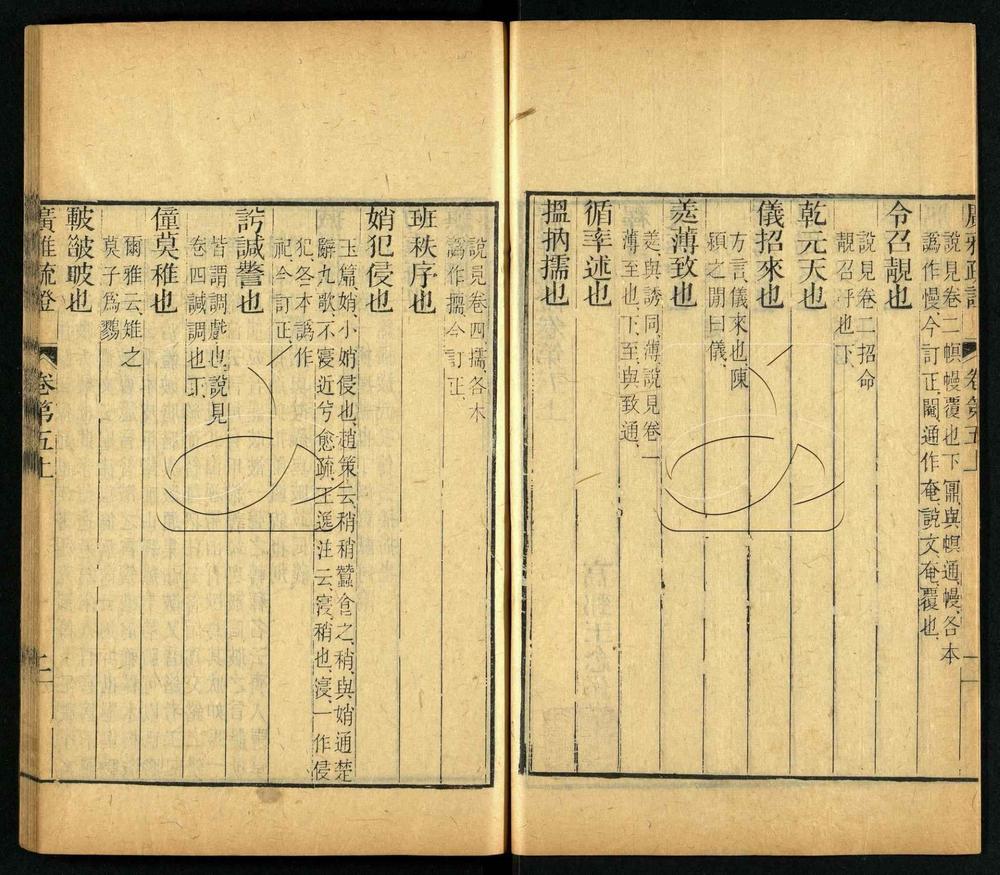 廣雅疏證
卷第五上
說見卷二幎幔覆也下鼏與幎通幔各本
譌作慢今訂正閹通作奄說文奄覆也
令召靚也
說見卷二招命
靚召呼也下
乾元天也
儀招來也
方言儀來也陳
潁之閒曰儀
羑薄致也
羑與誘同薄說見卷一
薄至也下至與致通
循率述也
搵抐擩也
說見卷四擩各本
譌作擩今訂正
班秩序也
㛐犯侵也
玉篇㛐小㛐侵也趙策云稍稍蠶食之稍與㛐通楚
辭九歌不寖近兮愈疏王逸注云寖稍也寖一作侵
犯各本譌作
祀今訂正
䛩諴謷也
皆謂調戲也說見
卷四諴調也下
僮莫稚也
爾雅云雉之
莫子為鷚
皸皵皴也
廣雅疏證
卷第五上
二